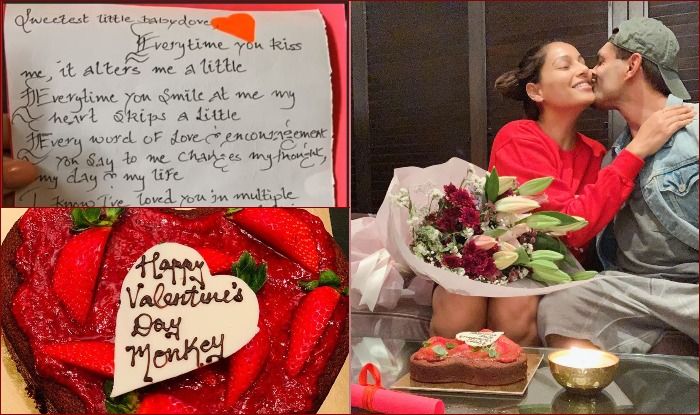 Sweetest little babydove,
Everytime you kiss
me, it alters me a little
Everytime you smile at me my
heart skips a little
Every word of love & encouragement
you say to me changes my thought,
my day & my life
I know I've loved you in multiple
Happy
Valentine's
Day
Monkey